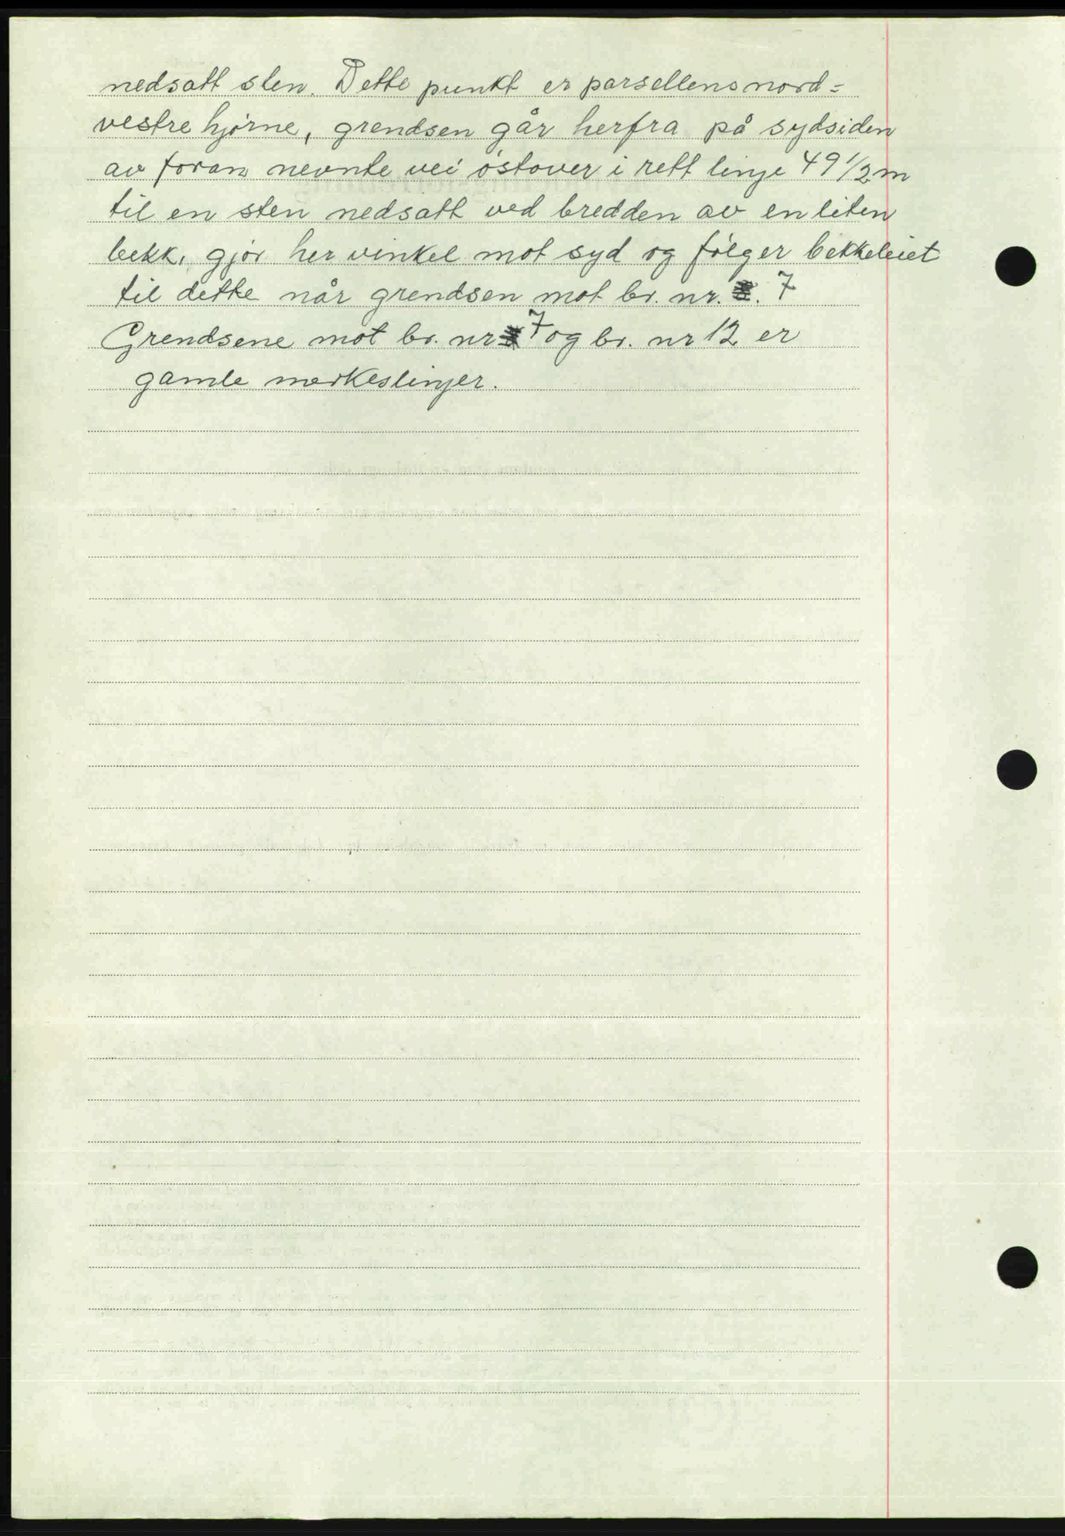 nedsatt sten. Dette punkt er parsellens nord=
vestre hjørne, grendsen går herfra på sydsiden
av foran nevnte vei østover i rett linje 49 1/2 m
til en sten nedsatt ved bredden av en liten
bekk, gjør her vinkel mot syd og følger bekkeleiet
til dette når grendsen mot br. nr. 7
Grendsene mot br. nr 7 og br. nr 12 er
gamle merkeslinjer.